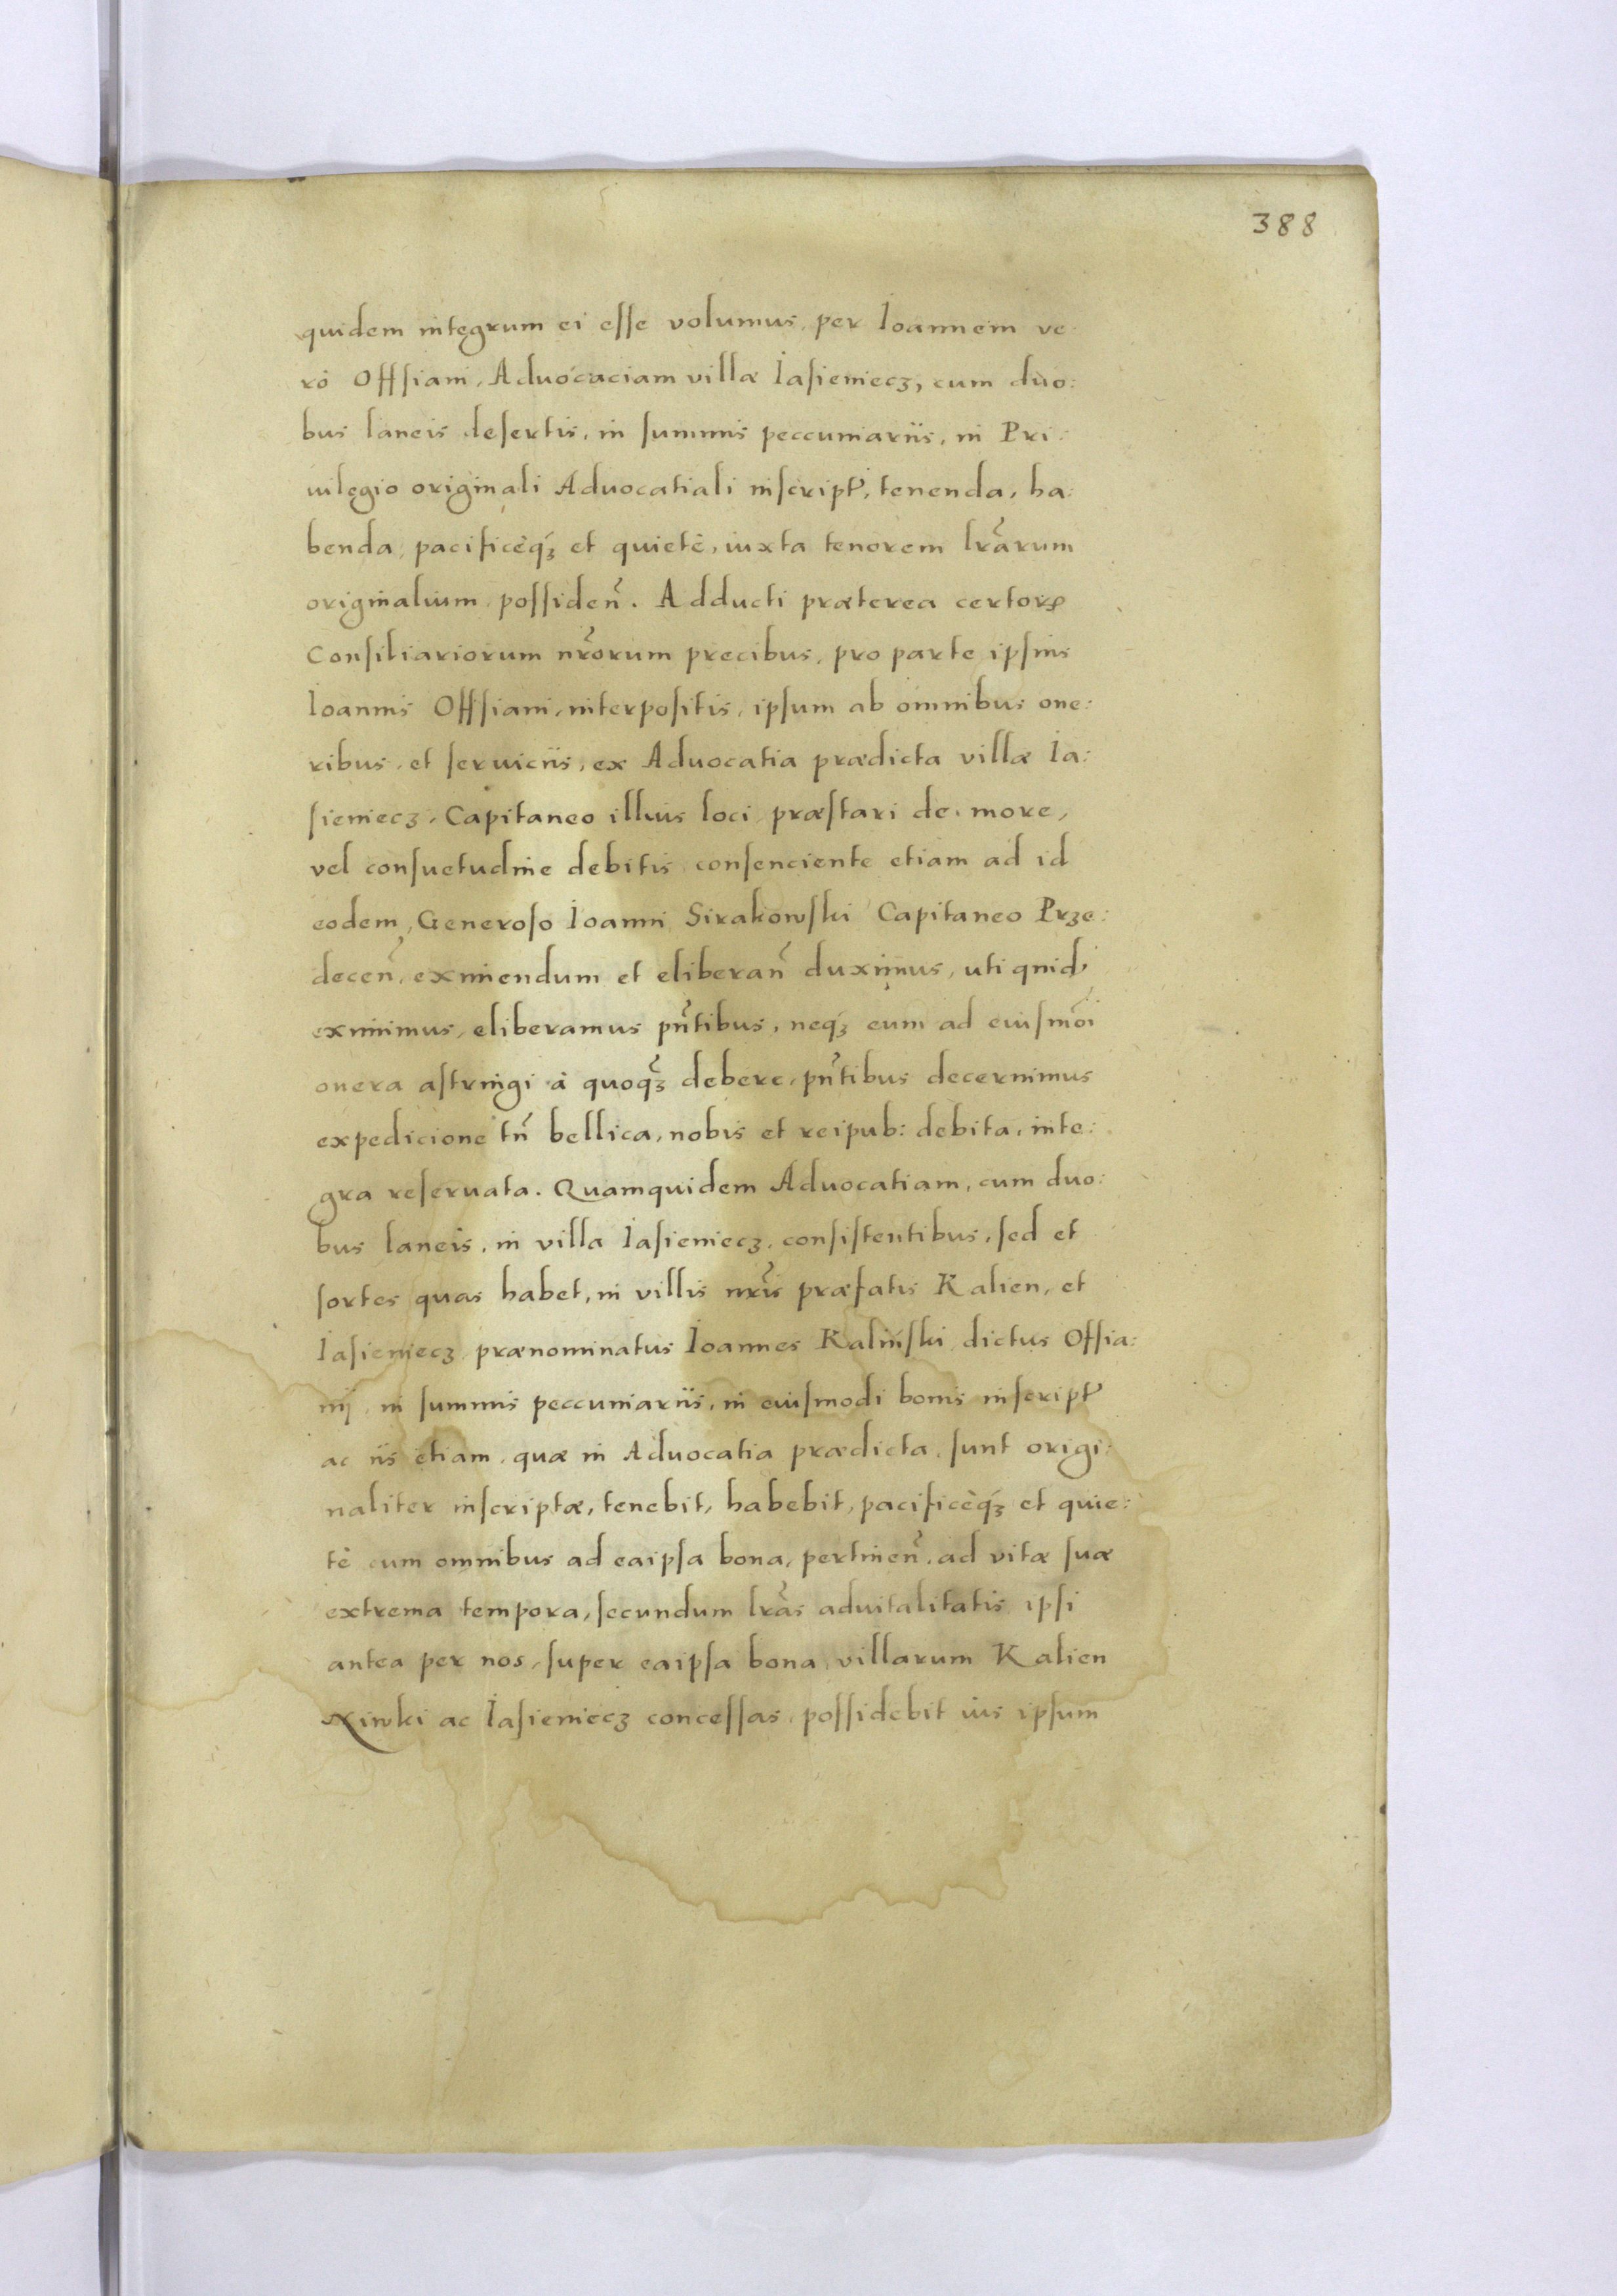 388
quidem integrum ei esse volumus, per Ioannem ve
rò Offsiani, Aduocaciam villæ Iasieniecz, cum duo:
bus laneis desertis, in summis peccuniariis, in Pri:
uilegio originali Aduocatiali inscript̃, tenenda, ha:
benda, pacificèq́ꝫ et quietè, iuxta tenorem lr̃arum
originalium possiden̄. Adducti præterea certoꝝ
Consiliariorum nr̃orum precibus, pro parte ipsius
Ioannis Offsiani, interpositis, ipsum ab omnibus one:
ribus, et seruiciis, ex Aduocatia prædicta villæ Ia:
sieniecz, Capitaneo illius loci, præstari de more,
vel consuetudine debitis consenciente etiam ad id
eodem, Generoso Ioanni Sirakowski Capitaneo Prze:
decen̄, eximendum et eliberan̄ duximus, uti quid̃
eximimus, eliberamus pn̄tibus, neq́ꝫ eum ad eiusmõi
onera astringi à quoq̃ꝫ debere, pn̄tibus decernimus
expedicione tn̄ bellica, nobis et reipub: debita, inte:
gra reseruata. Quamquidem Aduocatiam, cum duo:
bus laneis, in villa Iasieniecz, consistentibus, sed et
sortes quas habet, in villis nr̃is præfatis Kalien, et
Iasieniecz prænominatus Ioannes Kaliński dictus Offsia:
nij, in summis peccuniariis, in eiusmodi bonis inscript̃
ac iis etiam, quæ in Aduocatia prædicta, sunt origi:
naliter inscriptæ, tenebit, habebit, pacificèq́ꝫ et quie:
tè cum omnibus ad eaipsa bona, pertinen̄, ad vitæ suæ
extrema tempora, secundum lr̃as aduitalitatis ipsi
antea per nos, super eaipsa bona, villarum Kalien
Xiwki ac Iasieniecz concessas, possidebit ius ipsum